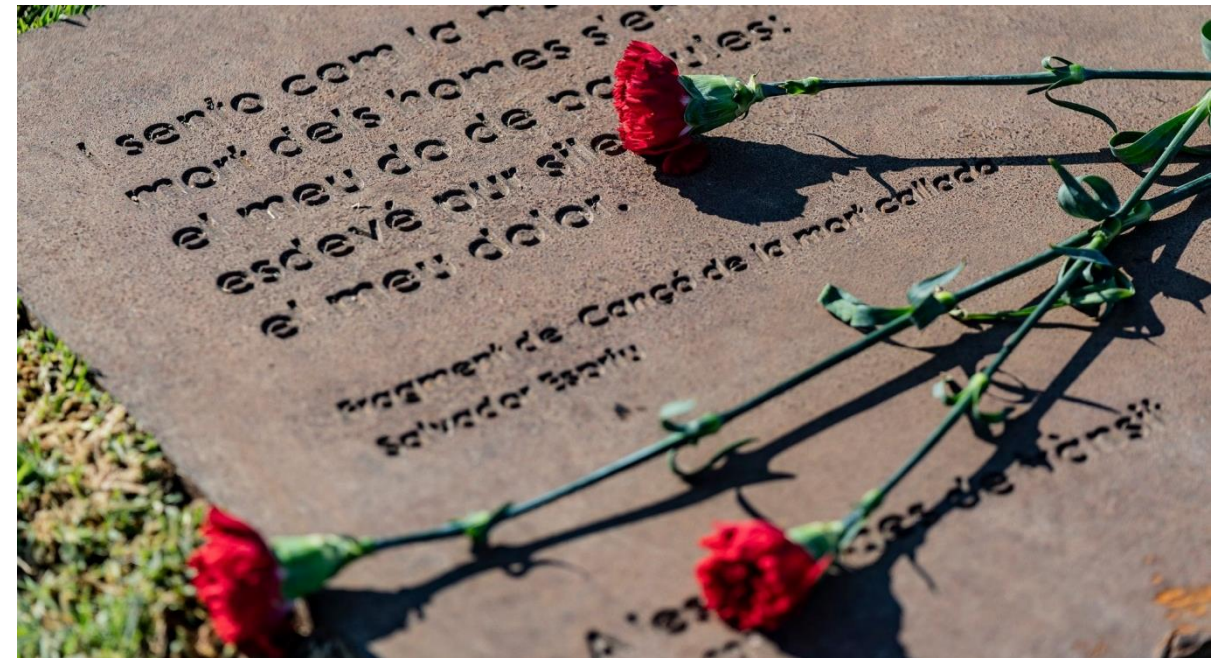 I sento com la
mort dels homes s'e
el meu do de paraules:
esdevé pur sile
el meu dolor.
Fragment de Cançó de la mort callada
Salvador Espriu
de trànsit
A l'es